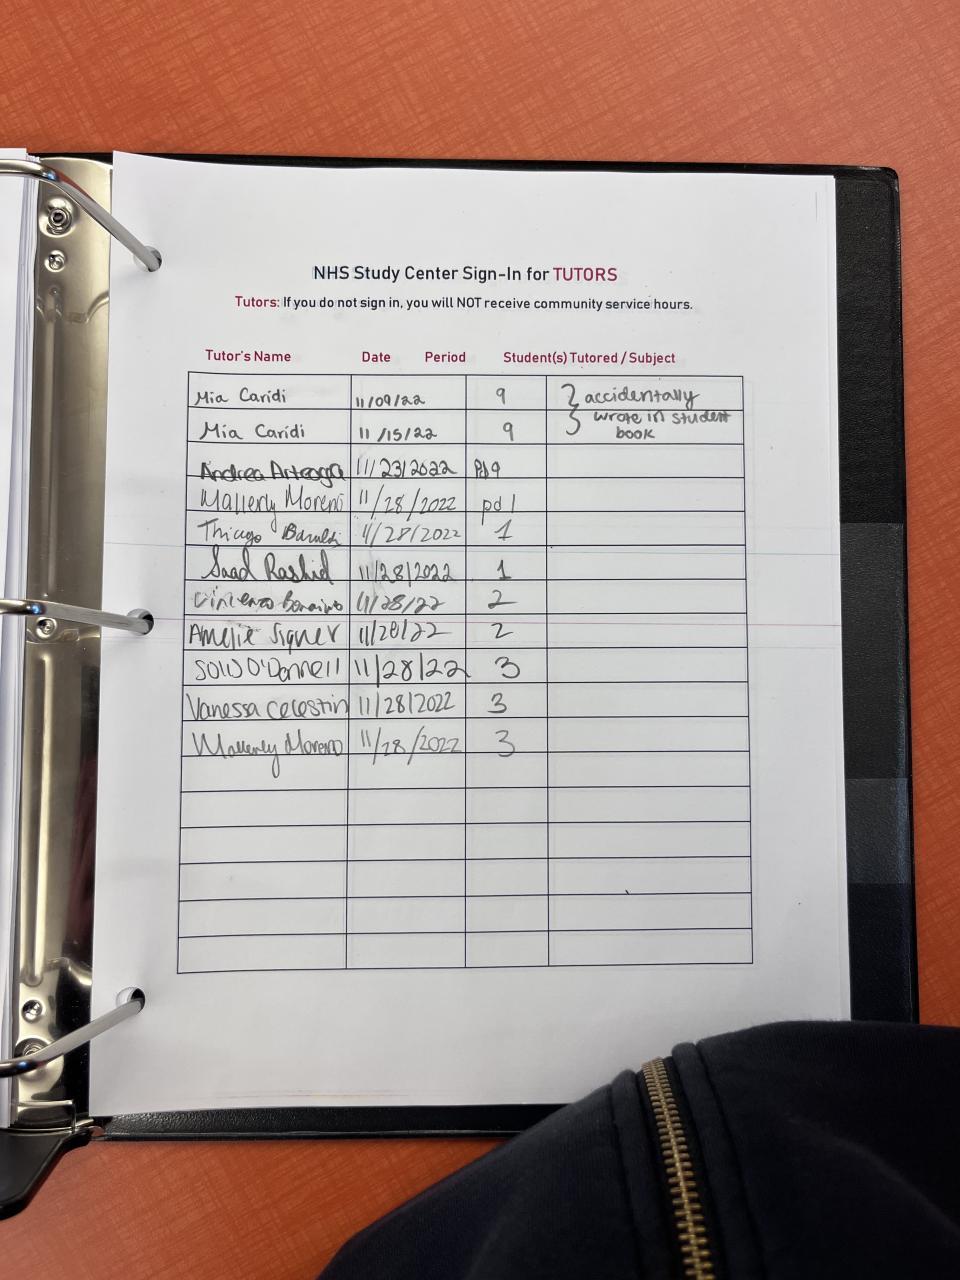 NHS Study Center Sign-In for TUTORS
Tutors: If you do not sign in, you will NOT receive community service hours.
Tutor's Name Date Period Student(s) Tutored / Subject
Mia Caridi 11/09/22 9 accidentally
wrote in student
Mia Caridi 11/15/22 9 book
Andrea Arteaga 11/23/2022 Pd 9
Mallerly Moreno 11/28/2022 pd 1
Thiago 11/28/2022 1
Saad Rashid 11/28/2022 1
Vincenzo 11/28/22 2
Amelie Signer 11/28/22 2
O'Donnell 11/28/22 3
Vanessa Celestin 11/28/2022 3
Mallerly Moreno 11/28/2022 3